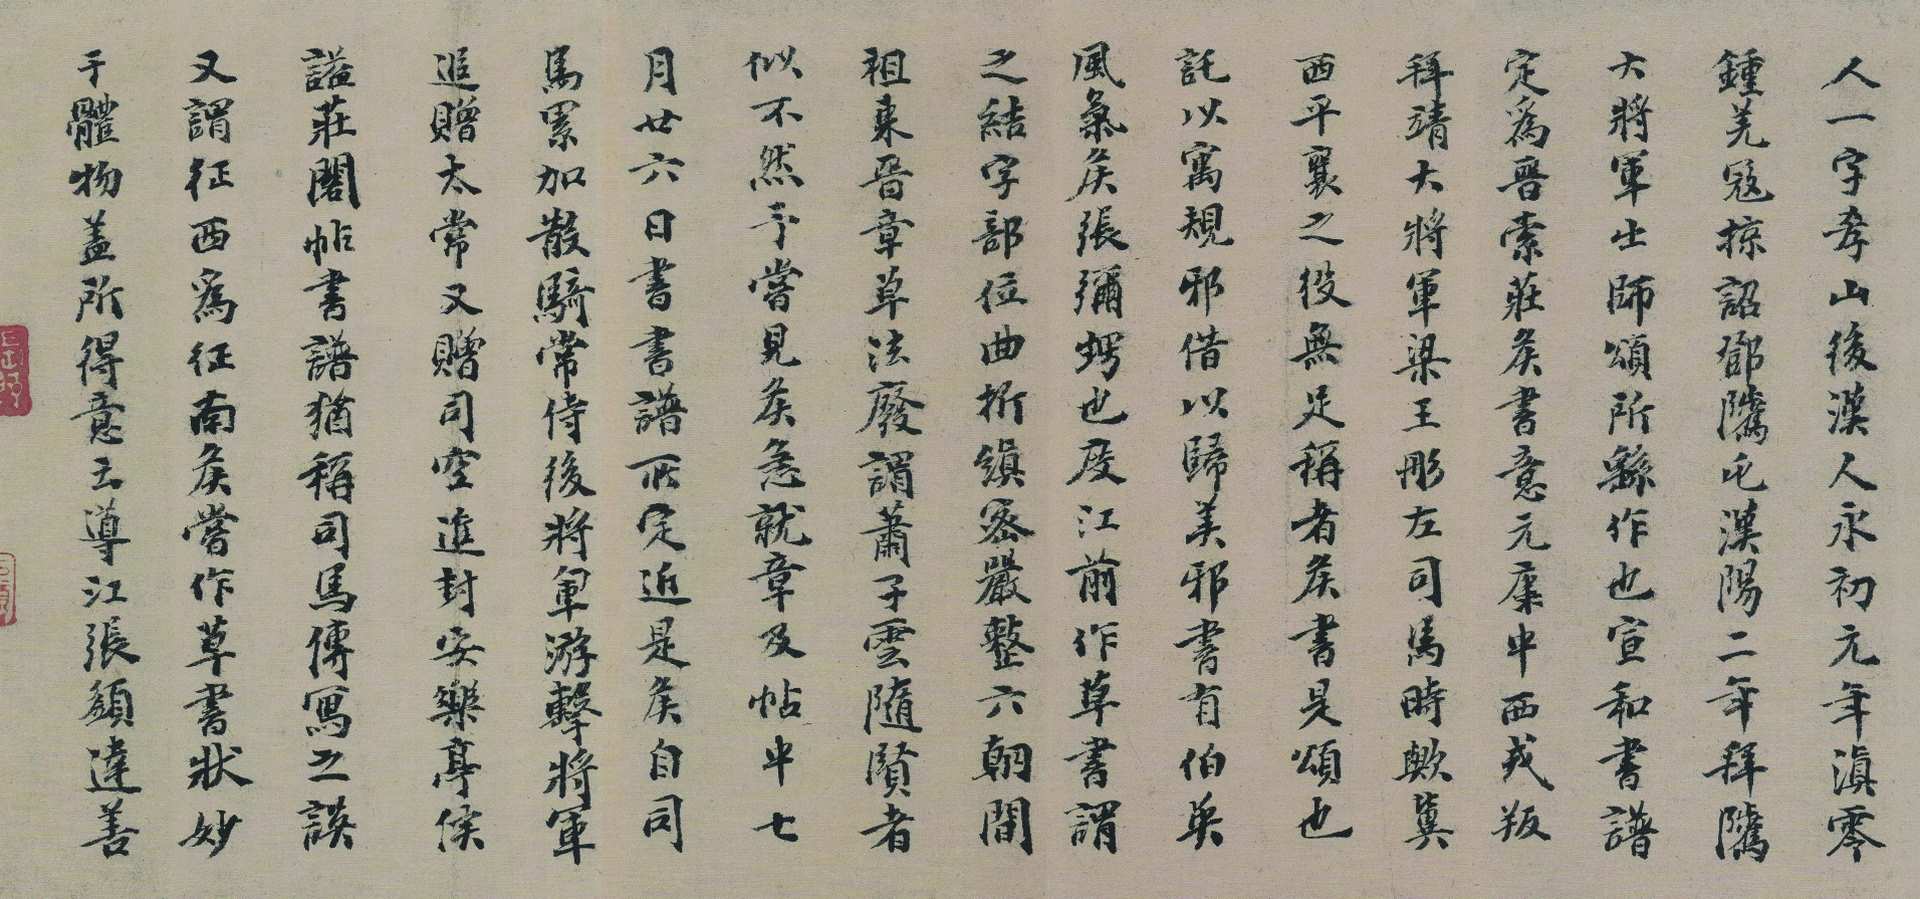 人一字孝山後漢人永初元年滇零
鍾羌寇掠詔鄧隲屯漢陽二年拜隲
大將軍出師頌所繇作也宣和書譜
定為晉索莊矦書意元康中西戎叛
拜靖大將軍梁王彤左司馬時歟冀
西平襄之役無足稱者矦書是頌也
託以寓規邪借以歸美邪書有伯英
風氣矦張彌愕也度江前作草書謂
之結字部位曲折縝密嚴整六朝間
祖東晉章草法廢謂蕭子雲隨賢者
似不然予嘗見矦急就章及帖中七
月廿六日書書譜所定近是矦自司
馬累加散騎常侍後將軍游擊將軍
追贈太常又贈司空進封安樂亭侯
謚莊閣帖書譜猶稱司馬傳寫之誤
又謂征西為征南矦嘗作草書狀妙
于體物蓋所得意王導江張顉達善